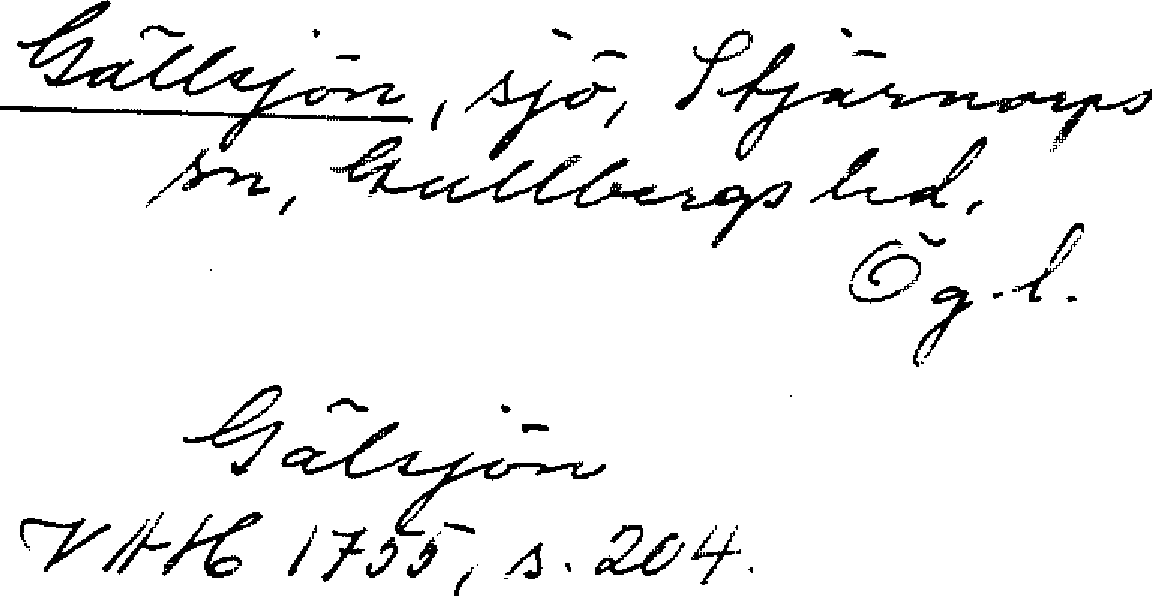 Gällsjön, sjö, Stjärnorps
sn, Gullbergs hd,
Ög. l.
Gälsjön
VAH 1755, s. 204.